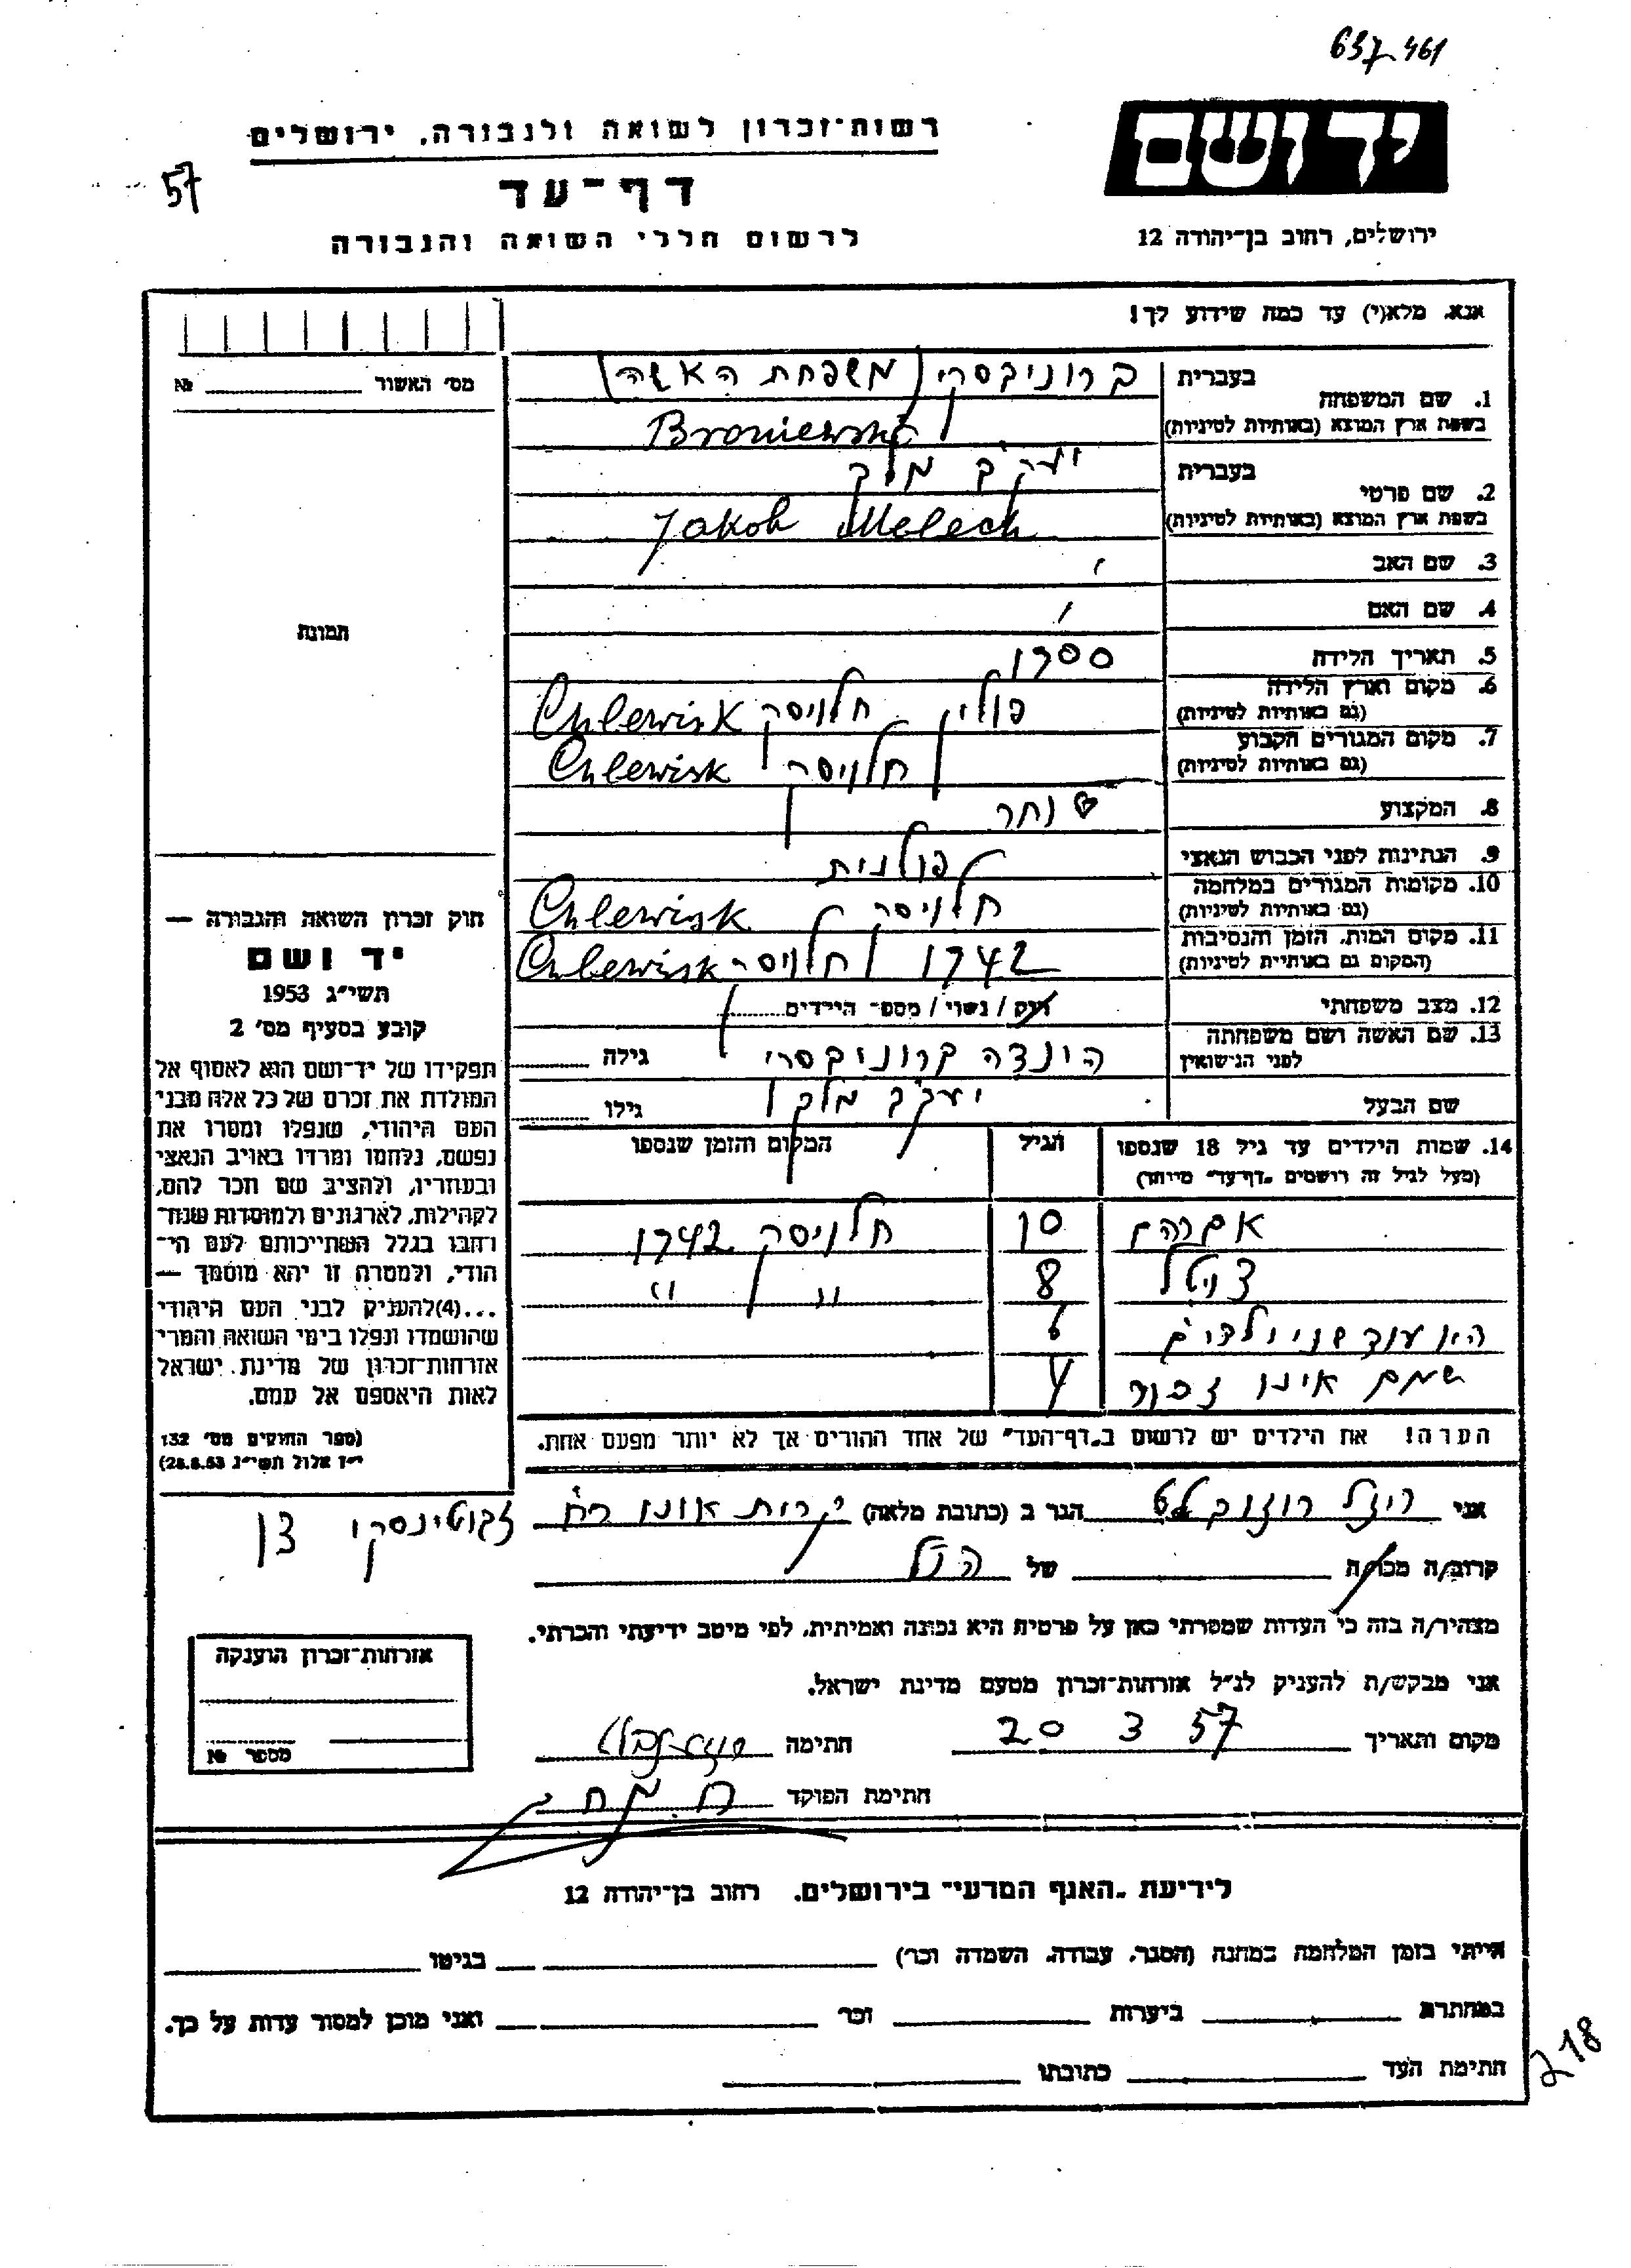 637-461
יד ושם
רשות־זכרון לשואה ולגבורה, ירושלים
57
דף־עד
ירושלים, רחוב בן־יהודה 12
לרשום חללי השואה והגבורה
אנא, מלא(י) עד כמה שידוע לך!
מס' האשור № ________
1. שם המשפחה בעברית ברוניבסקי (משפחת האשה)
בשפת ארץ המוצא (באותיות לטיניות) Broniewski
2. שם פרטי בעברית יעקב מלך
בשפת ארץ המוצא (באותיות לטיניות) Jakob Melech
3. שם האב
4. שם האם
תמונה
5. תאריך הלידה 1900
6. מקום וארץ הלידה (גם באותיות לטיניות) פולין חלויסק Chlewisk
7. מקום המגורים הקבוע (גם באותיות לטיניות) חלויסק Chlewisk
8. המקצוע סוחר
9. הנתינות לפני הכבוש הנאצי פולנית
10. מקומות המגורים במלחמה (גם באותיות לטיניות) חלויסק Chlewisk
11. מקום המות, הזמן והנסיבות (המקום גם באותיות לטיניות) 1942 חלויסק Chlewisk
12. מצב משפחתי רווק / נשוי / מספר הילדים
13. שם האשה ושם משפחתה לפני הנישואין הינדה ברוניבסקי גילה
שם הבעל יעקב מלך גילו
14. שמות הילדים עד גיל 18 שנספו הגיל המקום והזמן שנספו
(מעל לגיל זה רושמים "דף־עד" מיוחד)
אברהם 10 חלויסק 1942
צירל 8 " " "
היו עוד שני ילדים 6
שמם אינו זכור 4
הערה! את הילדים יש לרשום ב"דף־העד" של אחד ההורים אך לא יותר מפעם אחת.
חוק זכרון השואה והגבורה —
יד ושם
תשי"ג 1953
קובע בסעיף מס' 2
תפקידו של יד־ושם הוא לאסוף אל
המולדת את זכרם של כל אלה מבני
העם היהודי, שנפלו ומסרו את
נפשם, נלחמו ומרדו באויב הנאצי
ובעוזריו, ולהציב שם וזכר להם,
לקהילות, לארגונים ולמוסדות שנח־
רבו בגלל השתייכותם לעם הי־
הודי, ולמטרה זו יהא מוסמך —
...(4)להעניק לבני העם היהודי
שהושמדו ונפלו בימי השואה והמרי
אזרחות־זכרון של מדינת ישראל
לאות היאספם אל עמם.
(ספר החוקים מס' 132
י"ז אלול תשי"ג 28.8.53)
אני רוזנבלט הגר ב (כתובת מלאה) קרית אונו רח' זבוטינסקי
קרוב/ה מכר/ה של הנ"ל
מצהיר/ה בזה כי העדות שמסרתי כאן על פרטיה היא נכונה ואמיתית, לפי מיטב ידיעתי והכרתי.
אני מבקש/ת להעניק לנ"ל אזרחות־זכרון מטעם מדינת ישראל.
מקום ותאריך 20 3 57 חתימה
חתימת הפוקד
אזרחות־זכרון הוענקה
מספר №
לידיעת "האגף המדעי" בירושלים, רחוב בן־יהודה 12
הייתי בזמן המלחמה במחנה (הסגר, עבודה, השמדה וכו') בגיטו
במחתרת ביערות וכו' ואני מוכן למסור עדות על כך.
חתימת העד כתובתו
218